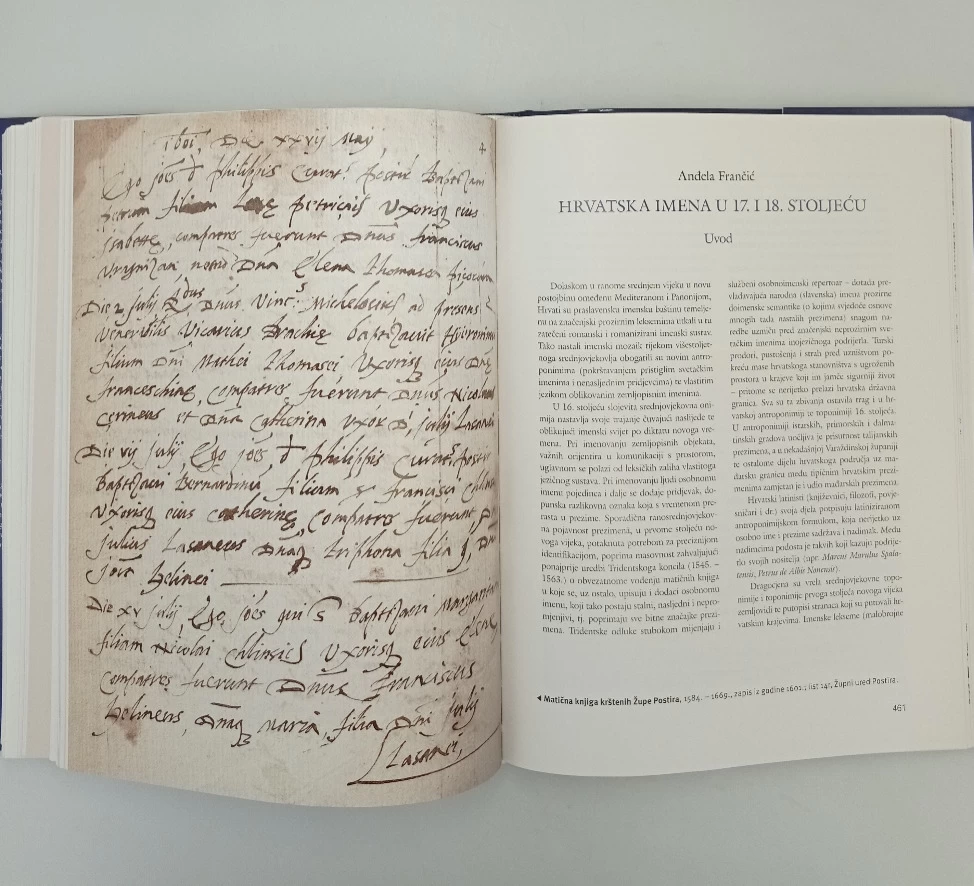 Die xxvij Maij
4
Ego joēs
philippis
filiam
petricis Uxorisq eius
compatres fuerunt Dnus franciscus
Dna Elena Thomaso
Die 2 Julij
Dnus Vinc.
Michelocius ad presens
Venerabilis Vicarius Brachię baptizavit
filium Dni Mathei Thomasei Uxorisq eius Dnę
franceschinę, compatres fuerunt Dnus Nicolaus
et Dna Catherina Uxor
Julij
Die vij Julij, Ego joēs
philippis
filium
Francisci
Uxorisq eius
Compatres fuerunt
Julius
filia
Die xv julij, Ego joēs qui
filiam Nicolai
Uxorisq eius
Compatres fuerunt Dnus Franciscus
Maria, filia Dni Julij
Anđela Frančić
HRVATSKA IMENA U 17. I 18. STOLJEĆU
Uvod
Dolaskom u ranome srednjem vijeku u novu
postojbinu omeđenu Mediteranom i Panonijom,
Hrvati su praslavensku imensku baštinu temelje-
nu na značenjski prozirnim leksemima utkali u na
zatečeni romanski i romanizirani imenski sustav.
Tako nastali imenski mozaik tijekom višestoljet-
noga srednjovjekovlja obogatili su novim antro-
ponimima (pokrštavanjem pristiglim svetačkim
imenima i nenasljednim pridjevcima) te vlastitim
jezikom oblikovanim zemljopisnim imenima.
U 16. stoljeću slojevita srednjovjekovna oni-
mija nastavlja svoje trajanje čuvajući naslijeđe te
oblikujući imenski svijet po diktatu novoga vre-
mena. Pri imenovanju zemljopisnih objekata,
važnih orijentira u komunikaciji s prostorom,
uglavnom se polazi od leksičkih zaliha vlastitoga
jezičnog sustava. Pri imenovanju ljudi osobnomu
imenu pojedinca i dalje se dodaje pridjevak, do-
punska razlikovna oznaka koja s vremenom pre-
rasta u prezime. Sporadična ranosrednjovjekov-
na pojavnost prezimena, u prvome stoljeću no-
voga vijeka, potaknuta potrebom za preciznijom
identifikacijom, poprima masovnost zahvaljujući
ponajprije uredbi Tridentskoga koncila (1545. –
1563.) o obvezatnome vođenju matičnih knjiga
u koje se, uz ostalo, upisuju i dodaci osobnomu
imenu, koji tako postaju stalni, nasljedni i nepro-
mjenjivi, tj. poprimaju sve bitne značajke prezi-
mena. Tridentske odluke stubokom mijenjaju i
službeni osobnoimenski repertoar – dotada pre-
vladavajuća narodna (slavenska) imena prozirne
doimenske semantike (o kojima svjedoče osnove
mnogih tada nastalih prezimena) snagom na-
redbe uzmiču pred značenjski neprozirnim sve-
tačkim imenima inojezičnoga podrijetla. Turski
prodori, pustošenja i strah pred uništenjem po-
kreću mase hrvatskoga stanovništva s ugroženih
prostora u krajeve koji im jamče sigurniji život
– pritome se nerijetko prelazi hrvatska državna
granica. Sva su ta zbivanja ostavila trag i u hr-
vatskoj antroponimiji te toponimiji 16. stoljeća.
U antroponimiji istarskih, primorskih i dalma-
tinskih gradova uočljiva je prisutnost talijanskih
prezimena, a u nekadašnjoj Varaždinskoj županiji
te ostalome dijelu hrvatskoga područja uz ma-
đarsku granicu među tipičnim hrvatskim prezi-
menima zamjetan je i udio mađarskih prezimena.
Hrvatski latinisti (književnici, filozofi, povje-
sničari i dr.) svoja djela potpisuju latiniziranom
antroponimijskom formulom, koja nerijetko uz
osobno ime i prezime sadržava i nadimak. Među
nadimcima podosta je takvih koji kazuju podrije-
tlo svojih nositelja (npr. Marcus Marulus Spala-
tensis, Petrus de Albis Nonensis).
Dragocjena su vrela srednjovjekovne topo-
nimije i toponimije prvoga stoljeća novoga vijeka
zemljovidi te putopisi stranaca koji su putovali hr-
vatskim krajevima. Imenske lekseme (malobrojne
◀ Matična knjiga krštenih Župe Postira, 1584. – 1669., zapis iz godine 1601.; list 14r, Župni ured Postira.
461